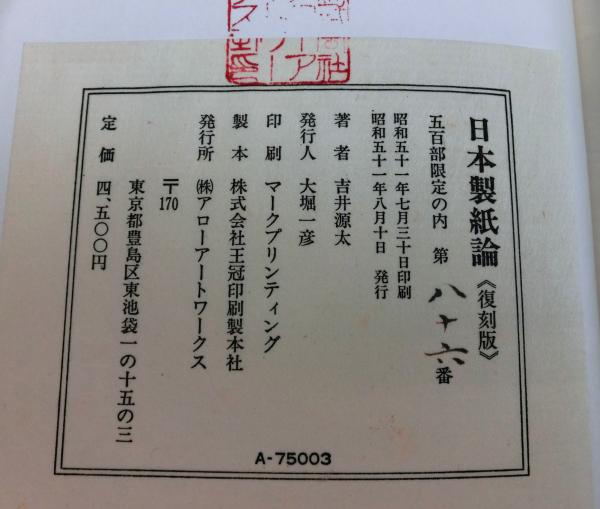 日本製紙論《復刻版》
五百部限定の内 第八十六番
昭和五十一年七月三十日印刷
昭和五十一年八月十日 発行
著者 吉井源太
発行人 大堀一彦
印刷 マークプリンティング
製本 株式会社王冠印刷製本社
発行所 ㈱アローアートワークス
〒170
東京都豊島区東池袋一の十五の三
定価 四、五〇〇円
A-75003